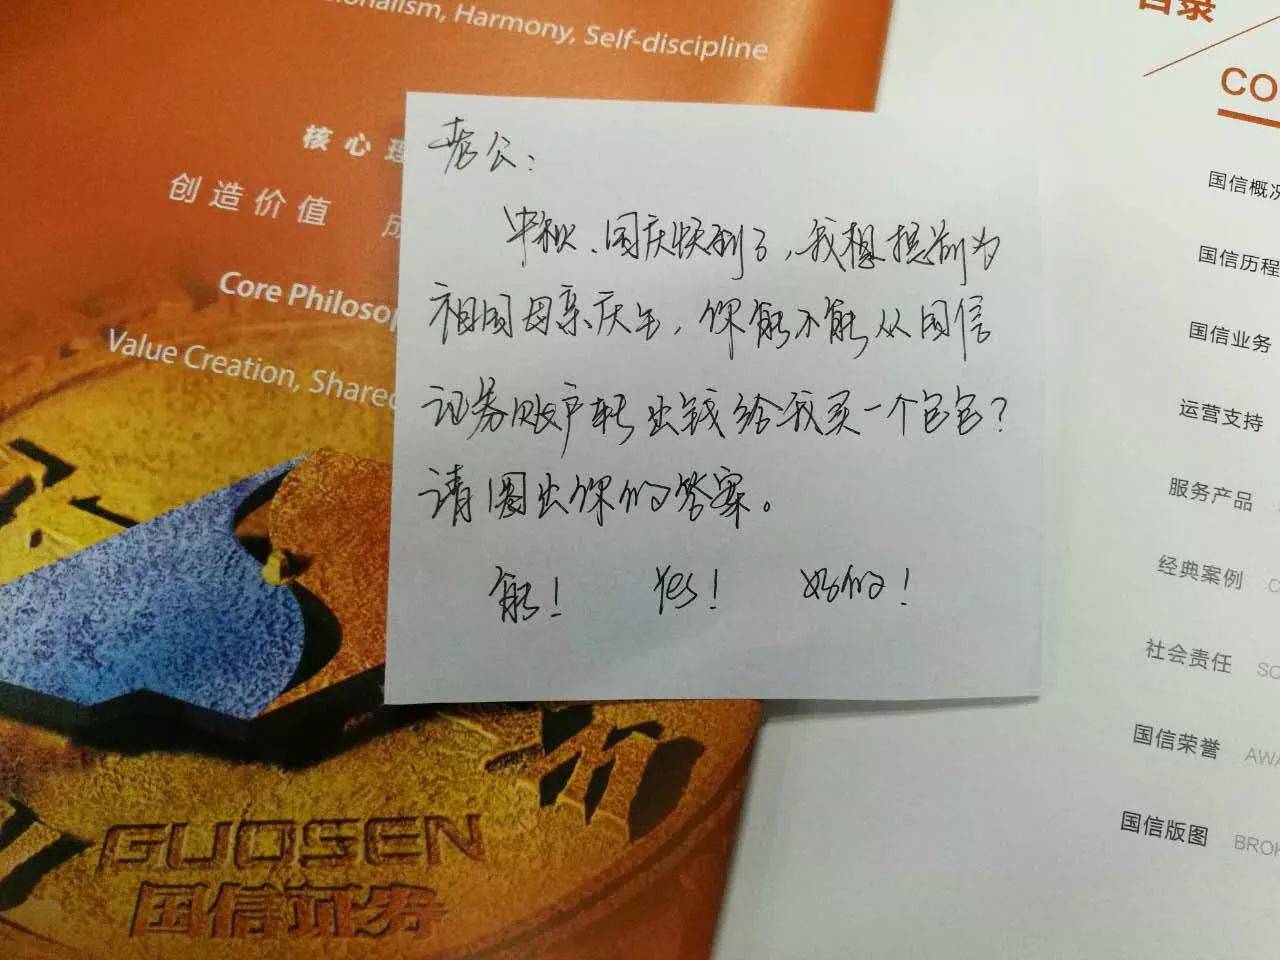 Harmony, Self-discipline
核心理
创造价值
Core Philosop
Value Creation, Shared
老公：
中秋、国庆快到了，我想提前为
祖国母亲庆生，你能不能从国信
证券账户转出钱给我买一个包包？
请圈出你的答案。
能！ Yes！ 好的！
GUOSEN
国信证券
目录
CO
国信概况
国信历程
国信业务
运营支持
服务产品
经典案例 C
社会责任 SO
国信荣誉 AWA
国信版图 BROK